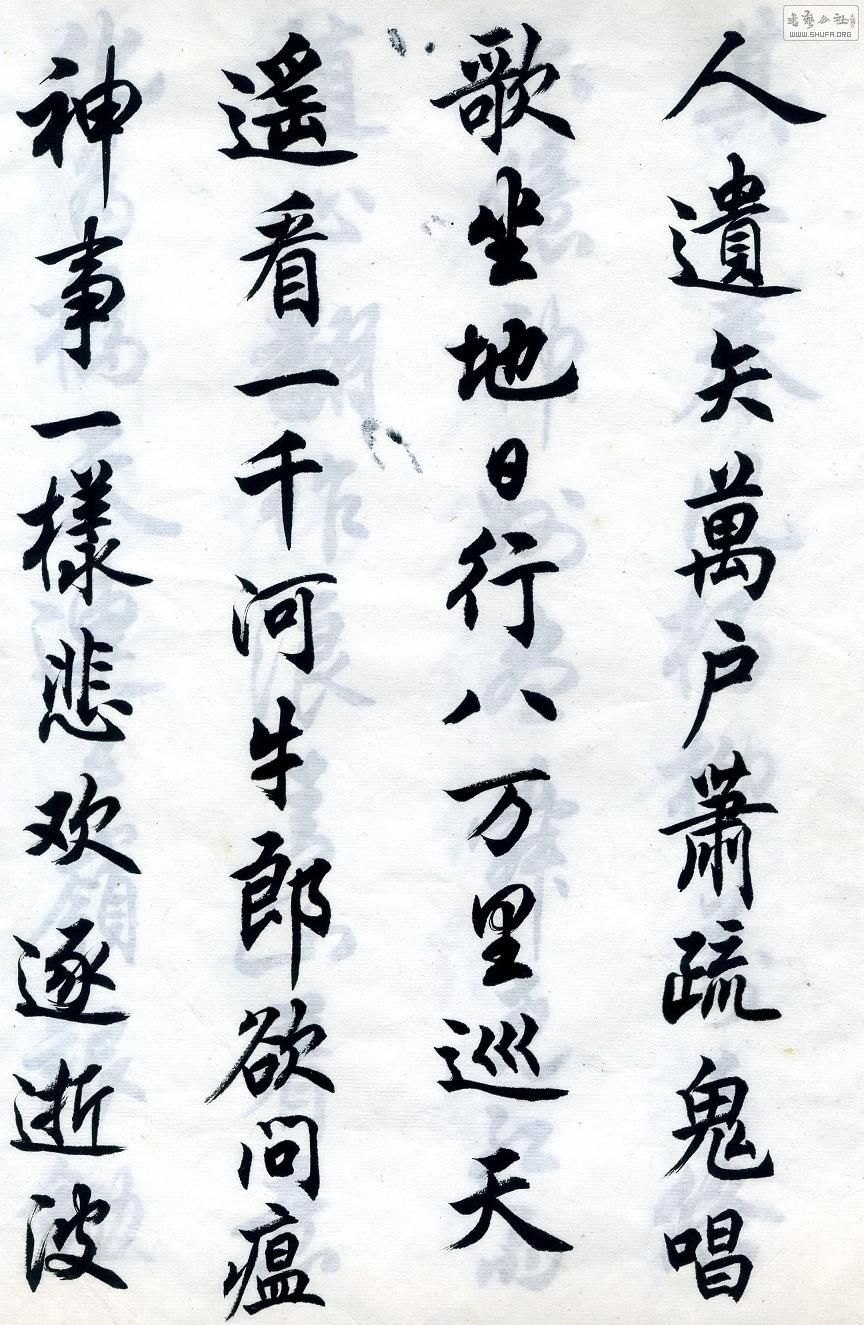 人遺矢萬戶蕭疏鬼唱
歌坐地日行八万里巡天
遙看一千河牛郎欲問瘟
神事一樣悲欢逐逝波
书艺公社
WWW.SHUFA.ORG